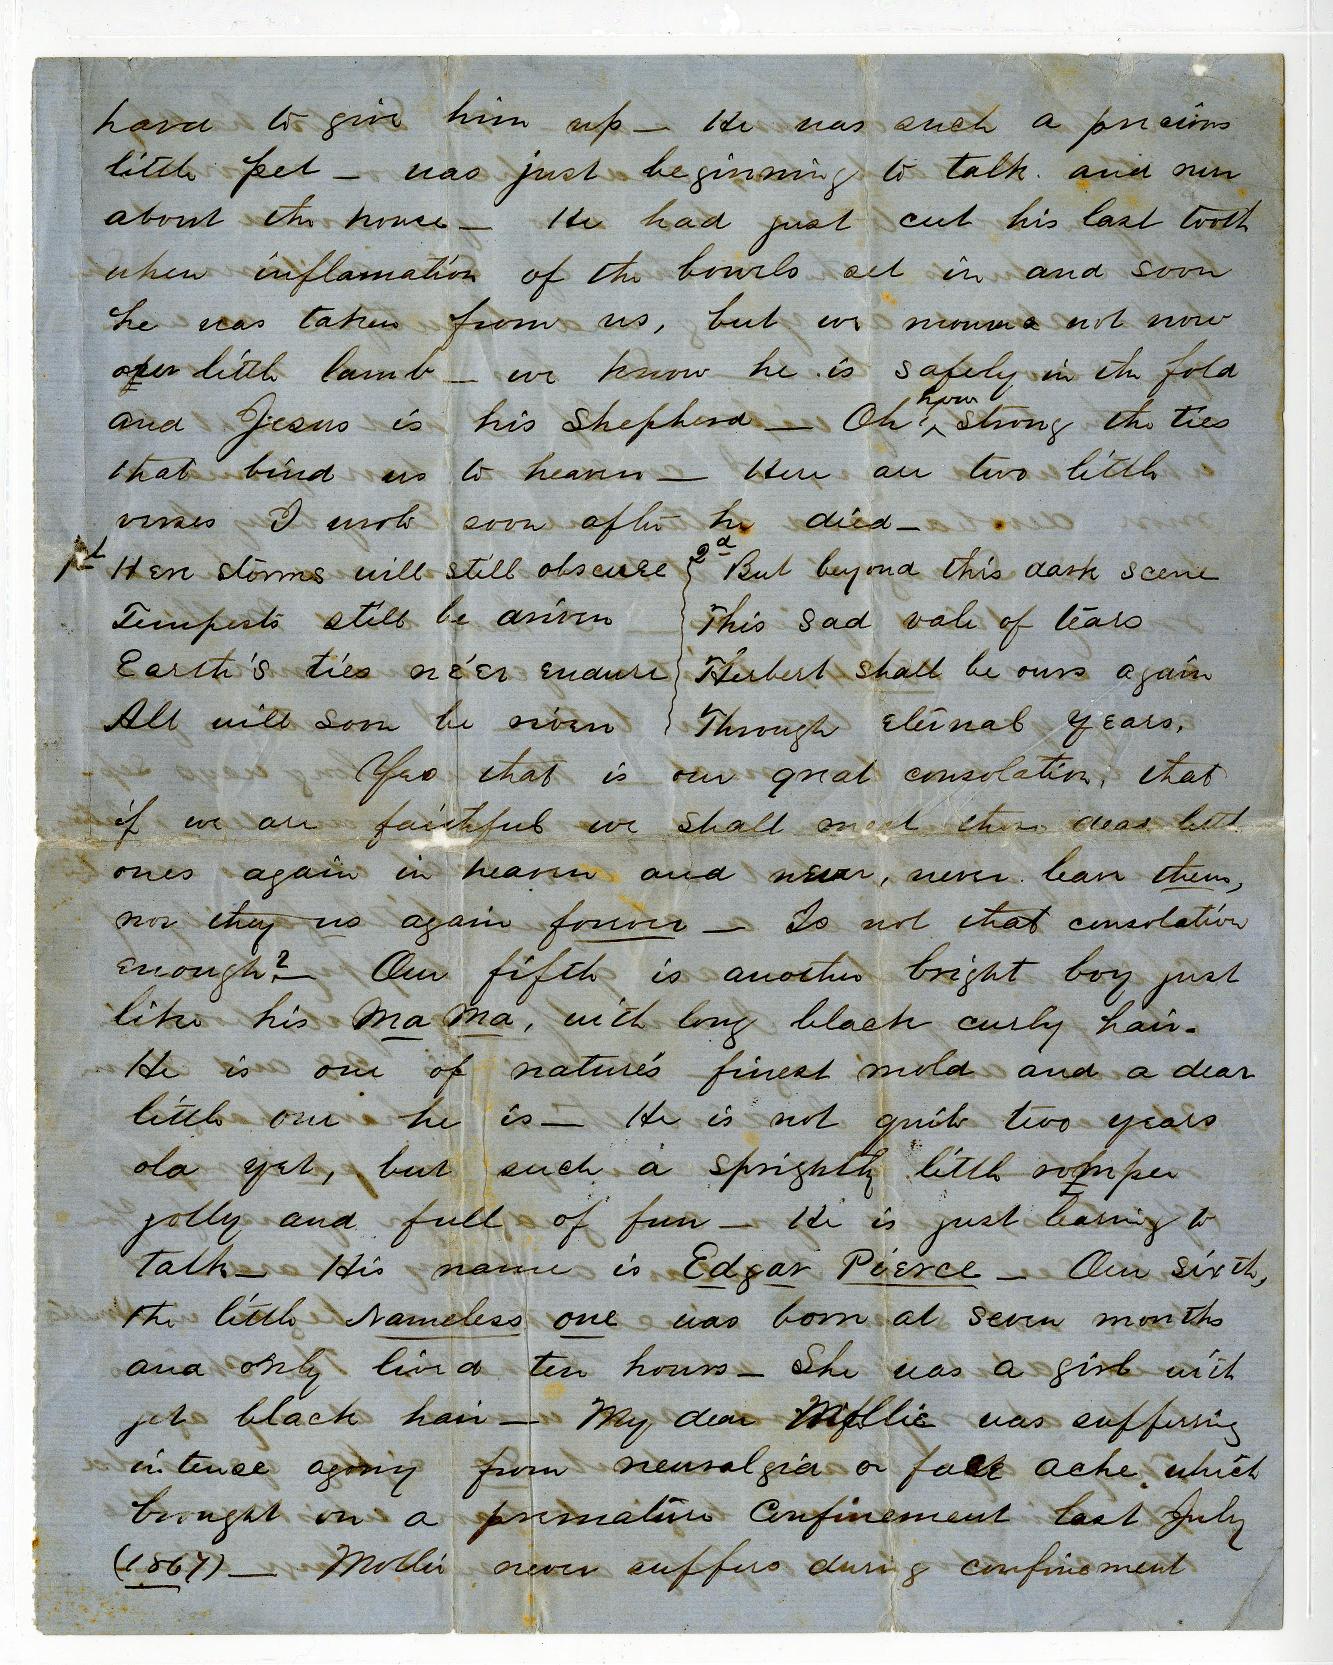 hard to give him up — He was such a precious
little pet — was just beginning to talk and run
about the house — He had just cut his last tooth
when inflamation of the bowels set in and soon
he was taken from us, but we mourn not now
our little lamb — we know he is safely in the fold
and Jesus is his Shepherd — Oh how strong the ties
that bind us to heaven — Here are two little
verses I wrote soon after he died —
1st Here storms will still obscure
Tempests still be driven
Earth's ties né'er endure
All will soon be riven
2d But beyond this dark scene
This sad vale of tears
Herbert shall be ours again
Through eternal years.
Yes that is our great consolation, that
if we are faithful we shall meet these dear little
ones again in heaven and never, never leave them,
nor they us again forever — Is not that consolation
enough? — Our fifth is another bright boy just
like his Ma Ma, with long black curly hair.
He is one of nature's finest mold and a dear
little one he is — He is not quite two years
old yet, but such a sprightly little romper
jolly and full of fun — He is just learning to
talk — His name is Edgar Pierce — Our sixth,
the little Nameless one was born at seven months
and only lived ten hours — She was a girl with
jet black hair — My dear Mollie was suffering
intense agony from neuralgia or face ache which
brought on a premature confinement last July
(1867) — Mollie never suffers during confinement